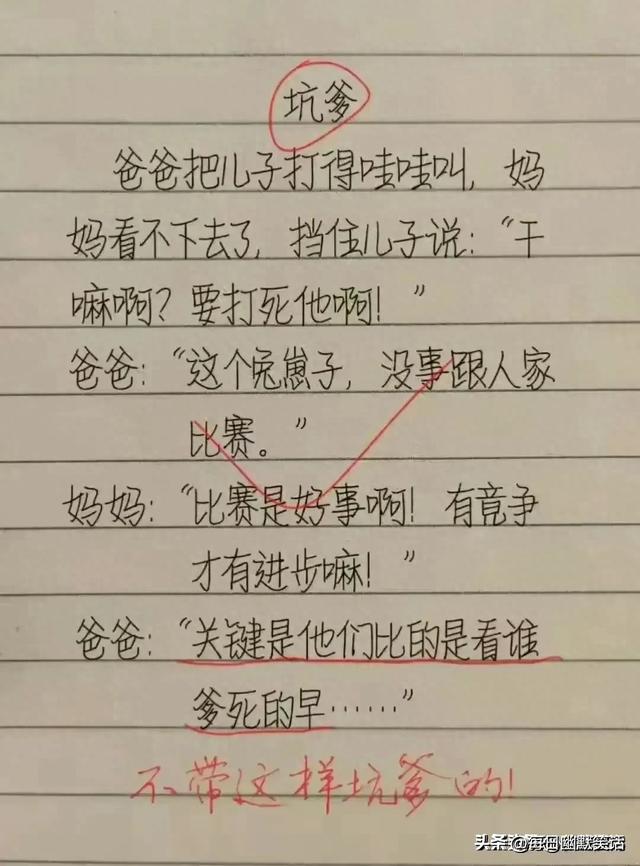 坑爹
爸爸把儿子打得哇哇叫，妈
妈看不下去了，挡住儿子说：“干
嘛啊？要打死他啊！”
爸爸：“这个兔崽子，没事跟人家
比赛。”
妈妈：“比赛是好事啊！有竞争
才有进步嘛！”
爸爸：“关键是他们比的是看谁
爹死的早……”
不带这样坑爹的！
@每日幽默笑话